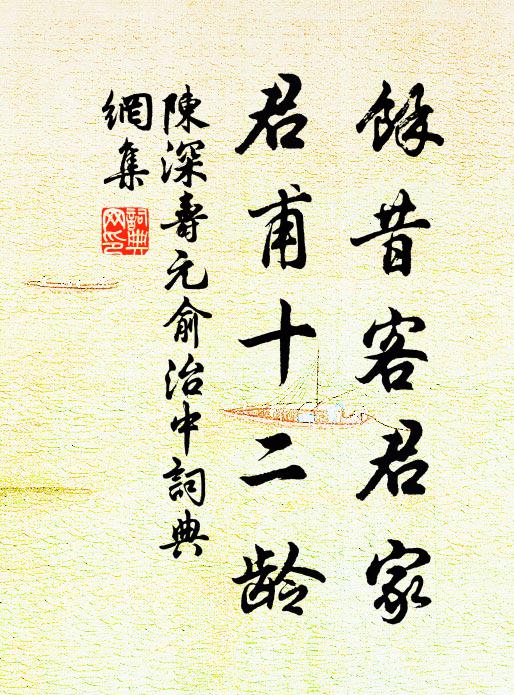 餘昔客君家
君甫十二龄
陳深壽元俞治中詞典
網集
詞典
网印